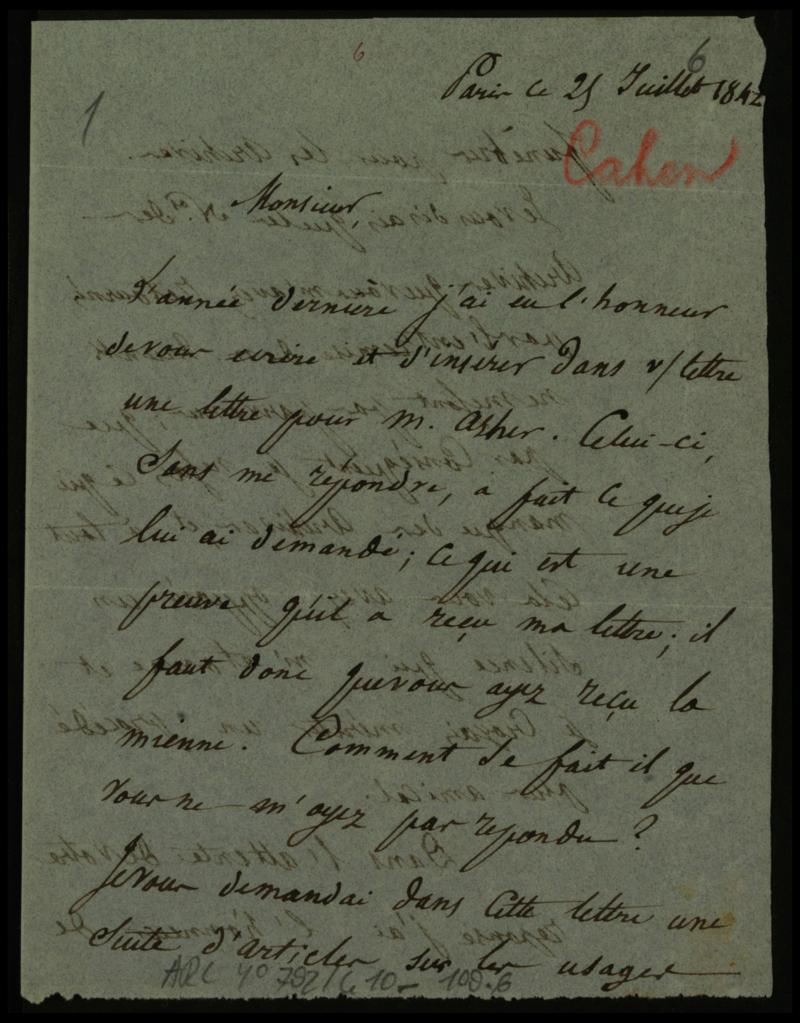 6
6
1
Paris le 25 Juillet 1842
Cahen
Monsieur,
L'année derniere j'ai eu l'honneur
de vous ecrire et d'inserer dans v/ lettre
une lettre pour M. Asher. Celui-ci,
sans me repondre, a fait ce que je
lui ai demandé; ce qui est une
preuve qu'il a reçu ma lettre; il
faut donc que vous ayez reçu la
mienne. Comment se fait il que
vous ne m'ayez pas repondu?
Je vous demandai dans cette lettre une
suite d'articles sur les usages
ARC 4° 792/C 10- 109.6